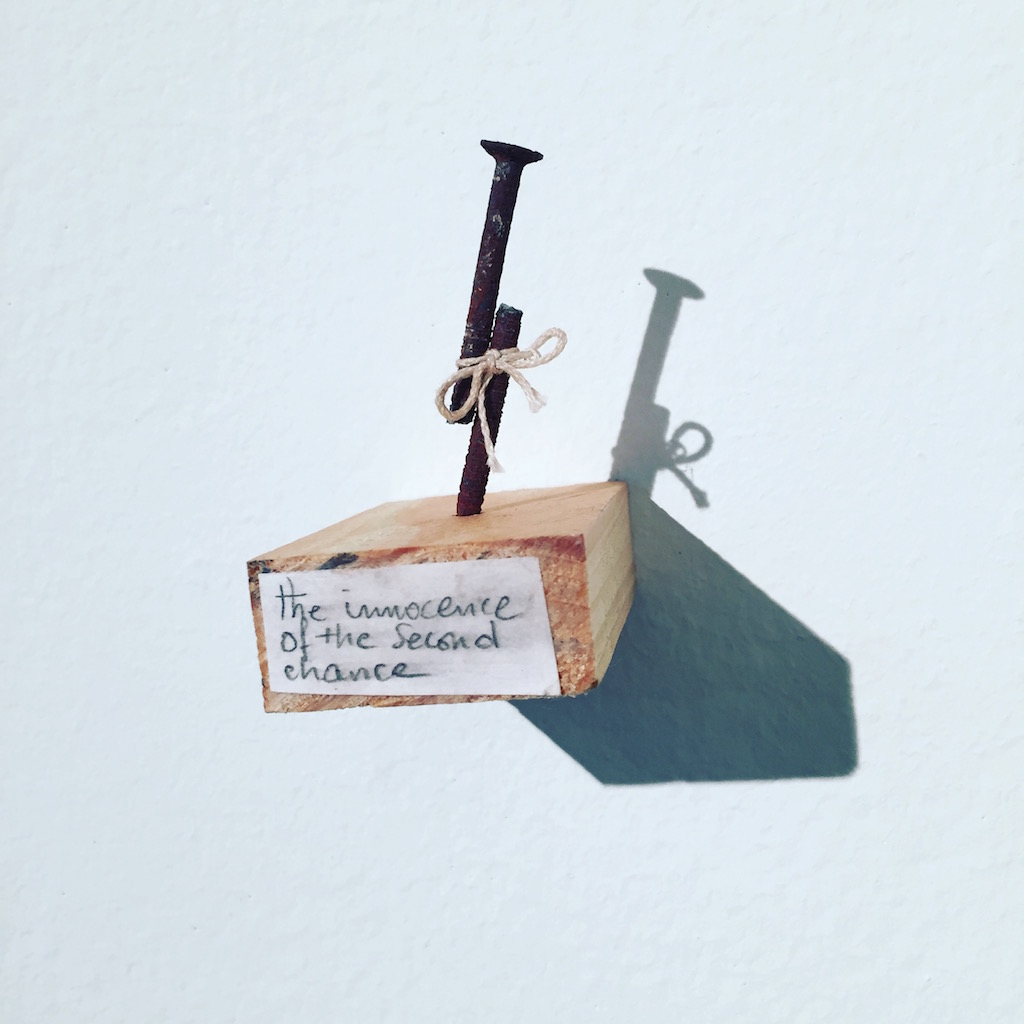 the innocence
of the Second
chance